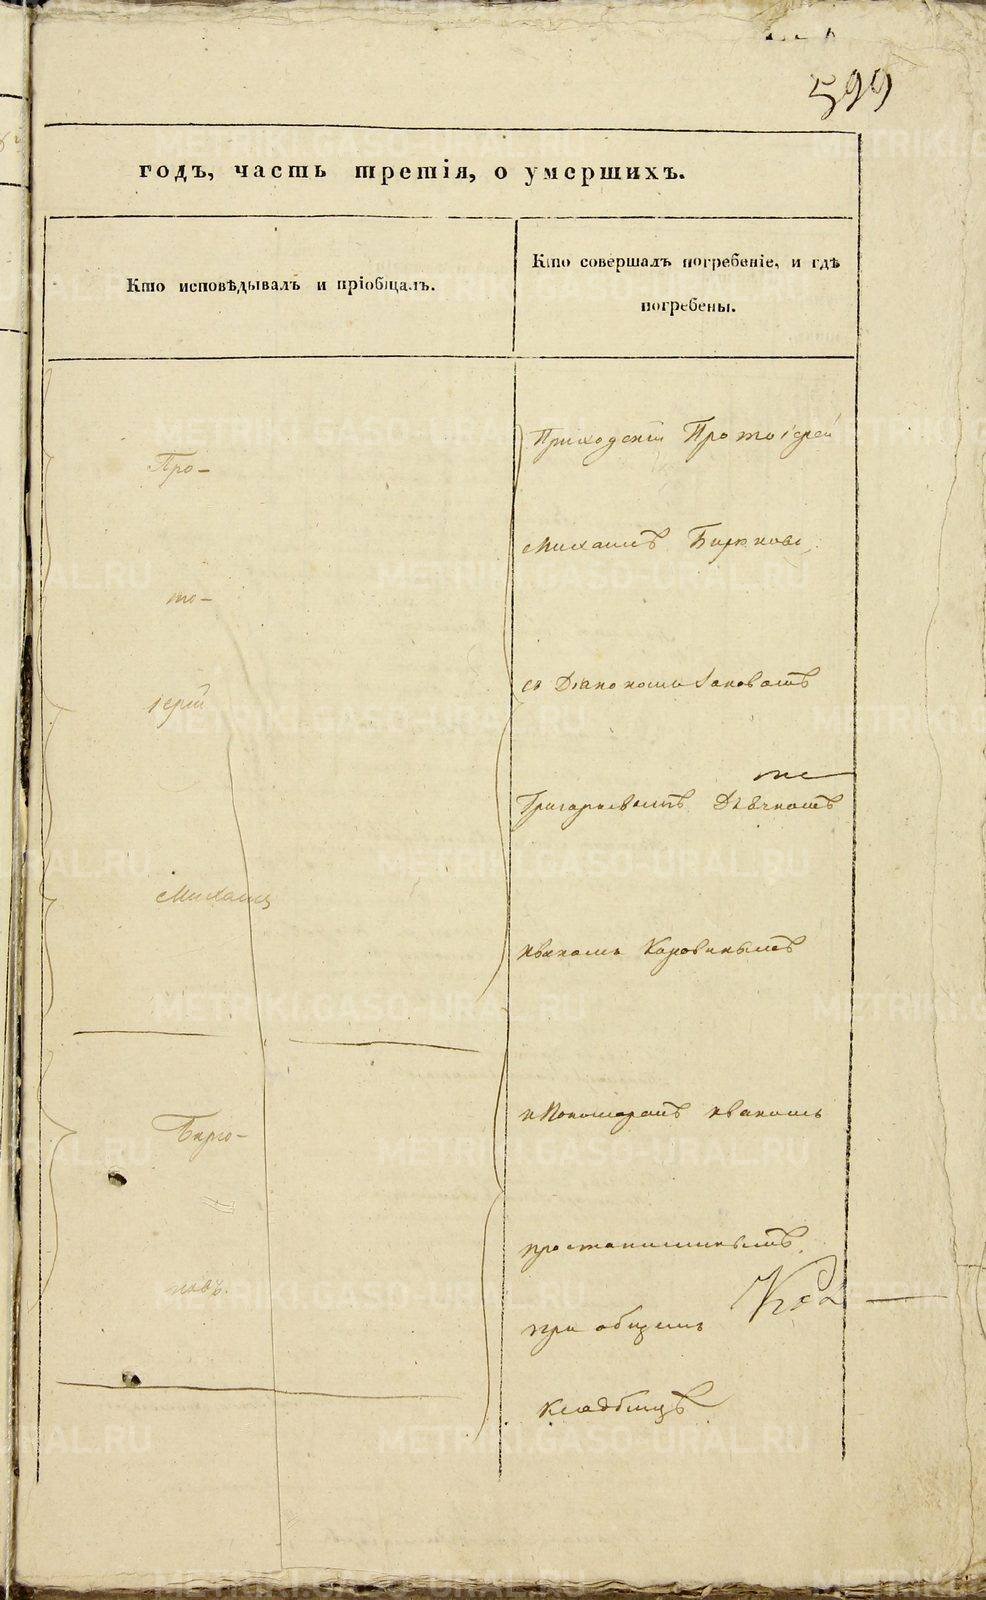 599
годъ, часть третія, о умершихъ.
Кто исповѣдывалъ и пріобщалъ.
Кто совершалъ погребеніе, и гдѣ
погребены.
Про-
то-
іерей
Михаилъ
Бирю-
ковъ.
Приходскій Протоіерей
Михаилъ Бирюковъ
съ Діакономъ Іаковомъ
Григорьевымъ Дьячкомъ
Иваномъ Коровинымъ
и Пономаремъ Иваномъ
при общемъ
кладбищѣ
METRIKI.GASO-URAL.RU